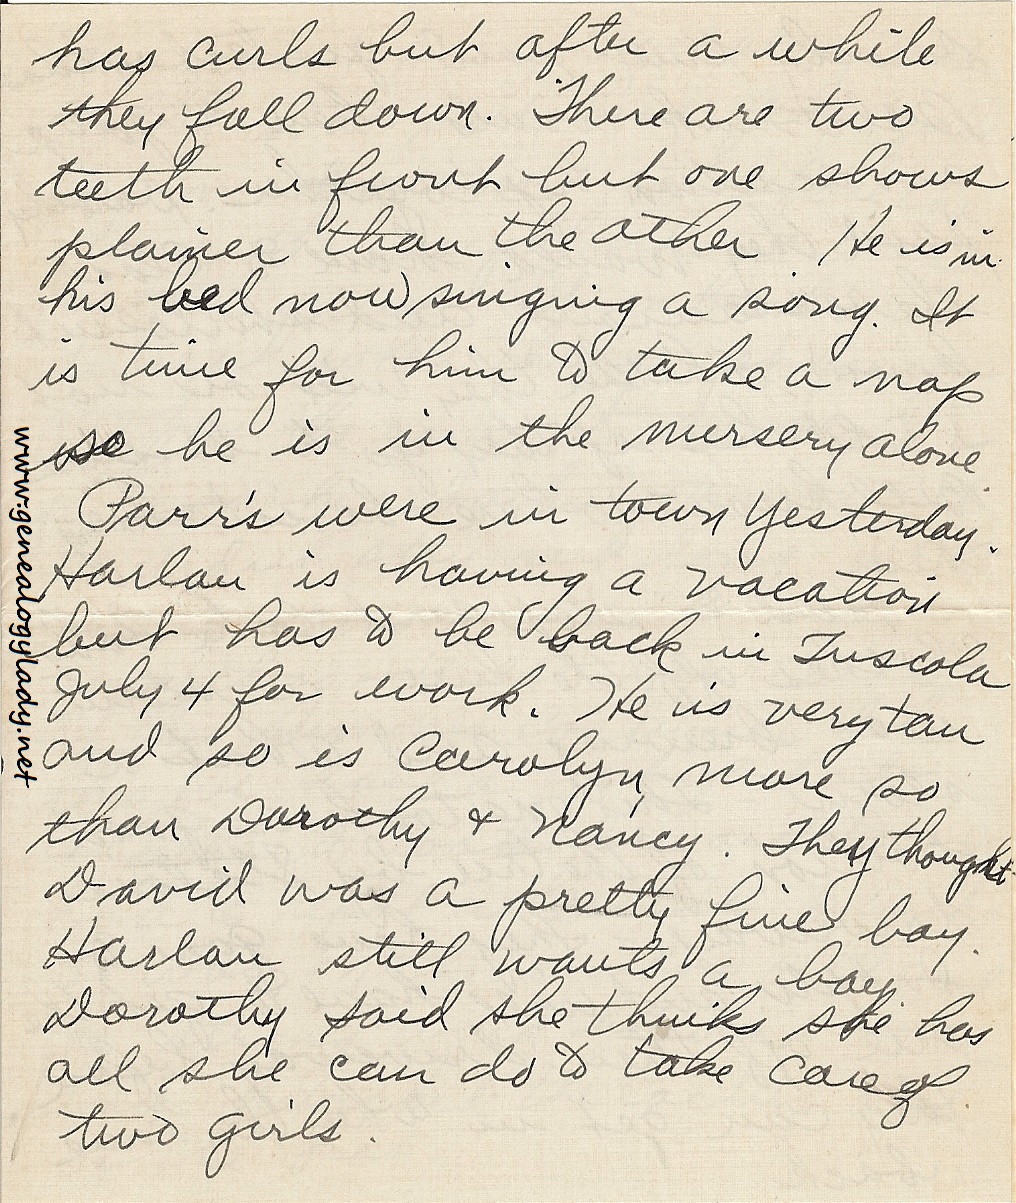 has curls but after a while
they fall down. There are two
teeth in front but one shows
plainer than the other He is in
his bed now singing a song. It
is time for him to take a nap
so he is in the nursery alone
Parr's were in town yesterday.
Harlan is having a vacation
but has to be back in Tuscola
July 4 for work. He is very tan
and so is Carolyn, more so
than Dorothy & Nancy. They thought
David was a pretty fine boy.
Harlan still wants a boy
Dorothy said she thinks she has
all she can do to take care of
two girls.
www.genealogylady.net